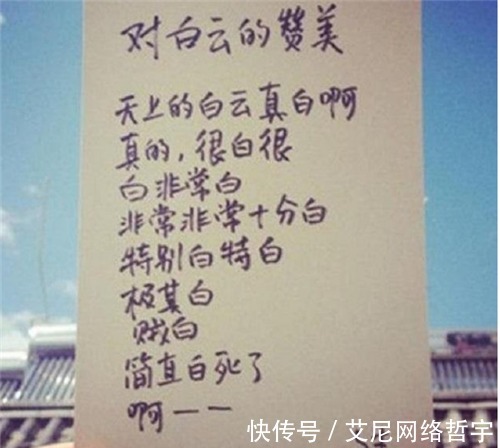 对白云的赞美
天上的白云真白啊
真的,很白很
白非常白
非常非常十分白
特别白特白
极其白
贼白
简直白死了
啊——
快传号/艾尼网络哲宇